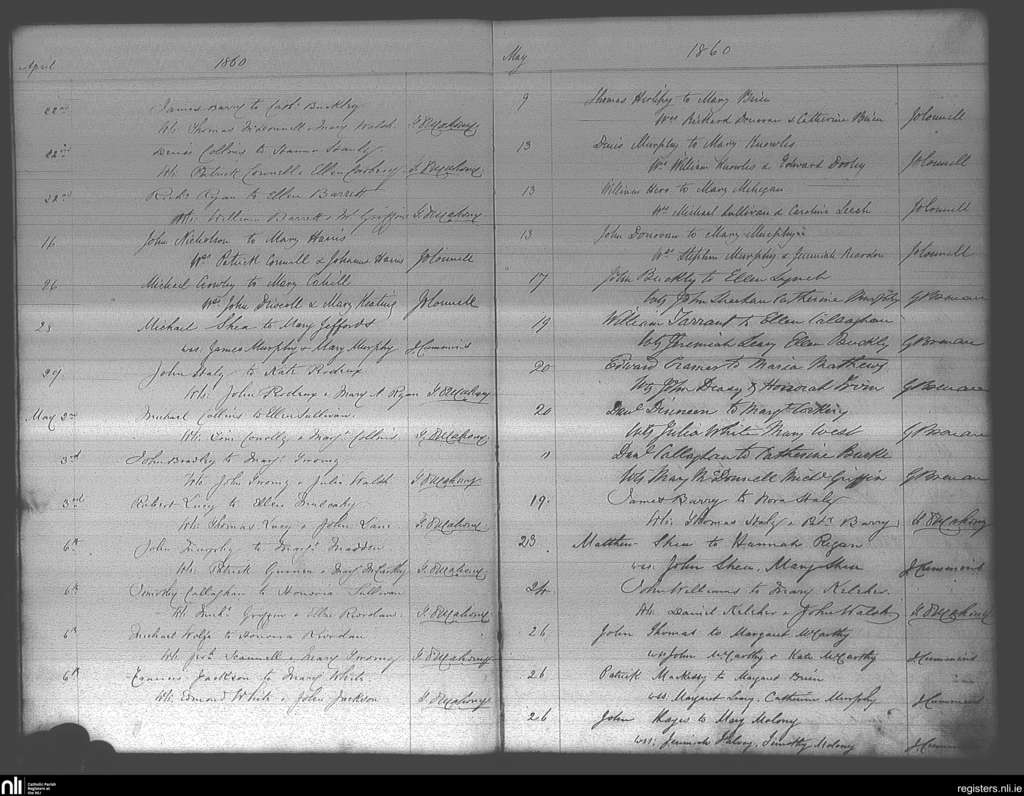 April 1860
22nd James Barry to Cath. Buckley
Wts. Thomas McDonnell & Mary Walsh T. O'Mahony
22nd Denis Collins to Hanna
Wts. Patrick Connell & Ellen T. O'Mahony
22nd Richd. Ryan to Ellen Barrett
Wts. William Barrett & M. Griffin T. O'Mahony
16 John Nicholson to Mary Harris
Wss Patrick Connell & Johanna Harris J O'Connell
26 Michael Crowley to Mary Cahill
Wss John Driscoll & Mary Keating J O'Connell
23 Michael Shea to Mary Jeffords
wss. James Murphy & Mary Murphy J Cummins
29 John Haly to Kate
Wts. John & Mary A Ryan T. O'Mahony
May 2nd Michael Collins to Ellen Sullivan.
Wts. & Margt. Collins T. O'Mahony
3rd John Bradley to Margt. Twomy
Wts. John Twomy & Julia Walsh T. O'Mahony
3rd Robert Lucy to Ellen
Wts. Thomas Lucy & John Lane T. O'Mahony
6th John to Margt. Madden
Wts. Patrick & Margt. McCarthy T. O'Mahony
6th Timothy Callaghan to Honoria Sullivan
Wts. Michl. Griffin & Ellen Riordan T. O'Mahony
6th Michael Wolfe to Honora Riordan
Wts. Scannell & Mary Twomy T. O'Mahony
6th Francis Jackson to Mary White
Wts. Edmond White & John Jackson T. O'Mahony
May 1860
9 Thomas to Mary Brien
Wss Richard Donovan & Catherine Brien J O'Connell
13 Denis Murphy to Mary Knowles
Wss William Knowles & Edward Dooley J O'Connell
13 William to Mary Mehegan
Wss Michael Sullivan & Caroline Leech J O'Connell
13 John Donovan to Mary Murphy
Wss Stephen Murphy & Jeremiah Reardon J O'Connell
17 John Buckley to Ellen Lynch
Wts John Sheehan Catherine Murphy
19 William Tarrant to Ellen Callaghan
Wts Jeremiah Leary Ellen Buckly
20 Edward Cramer to Maria Mathews
Wts John Deasy & Honorah
20 Danl. Dineneen to Margt.
Wts Julia White Mary West
" Danl. Callaghan to Catherine Burke
Wts Mary McDonnell Michl Griffin
19. James Barry to Nora Haly
Wts. Thomas Haly & Barry T. O'Mahony
23 Matthew Shea to Hannah Regan
wss. John Shea, Mary Shea J Cummins
24 John Williams to Mary Kelcher.
Wts. Daniel Kelcher & John Walsh T. O'Mahony
26 John Thomas to Margaret McCarthy
wss John McCarthy & Kate McCarthy J Cummins
26 Patrick to Margaret Brien
wss. Margaret Leary, Catherine Murphy J Cummins
26 John Hayes to Mary Molony
wss. Jeremiah Timothy Molony J. Cummins
nli
Catholic Parish
Registers at
the NLI
registers.nli.ie